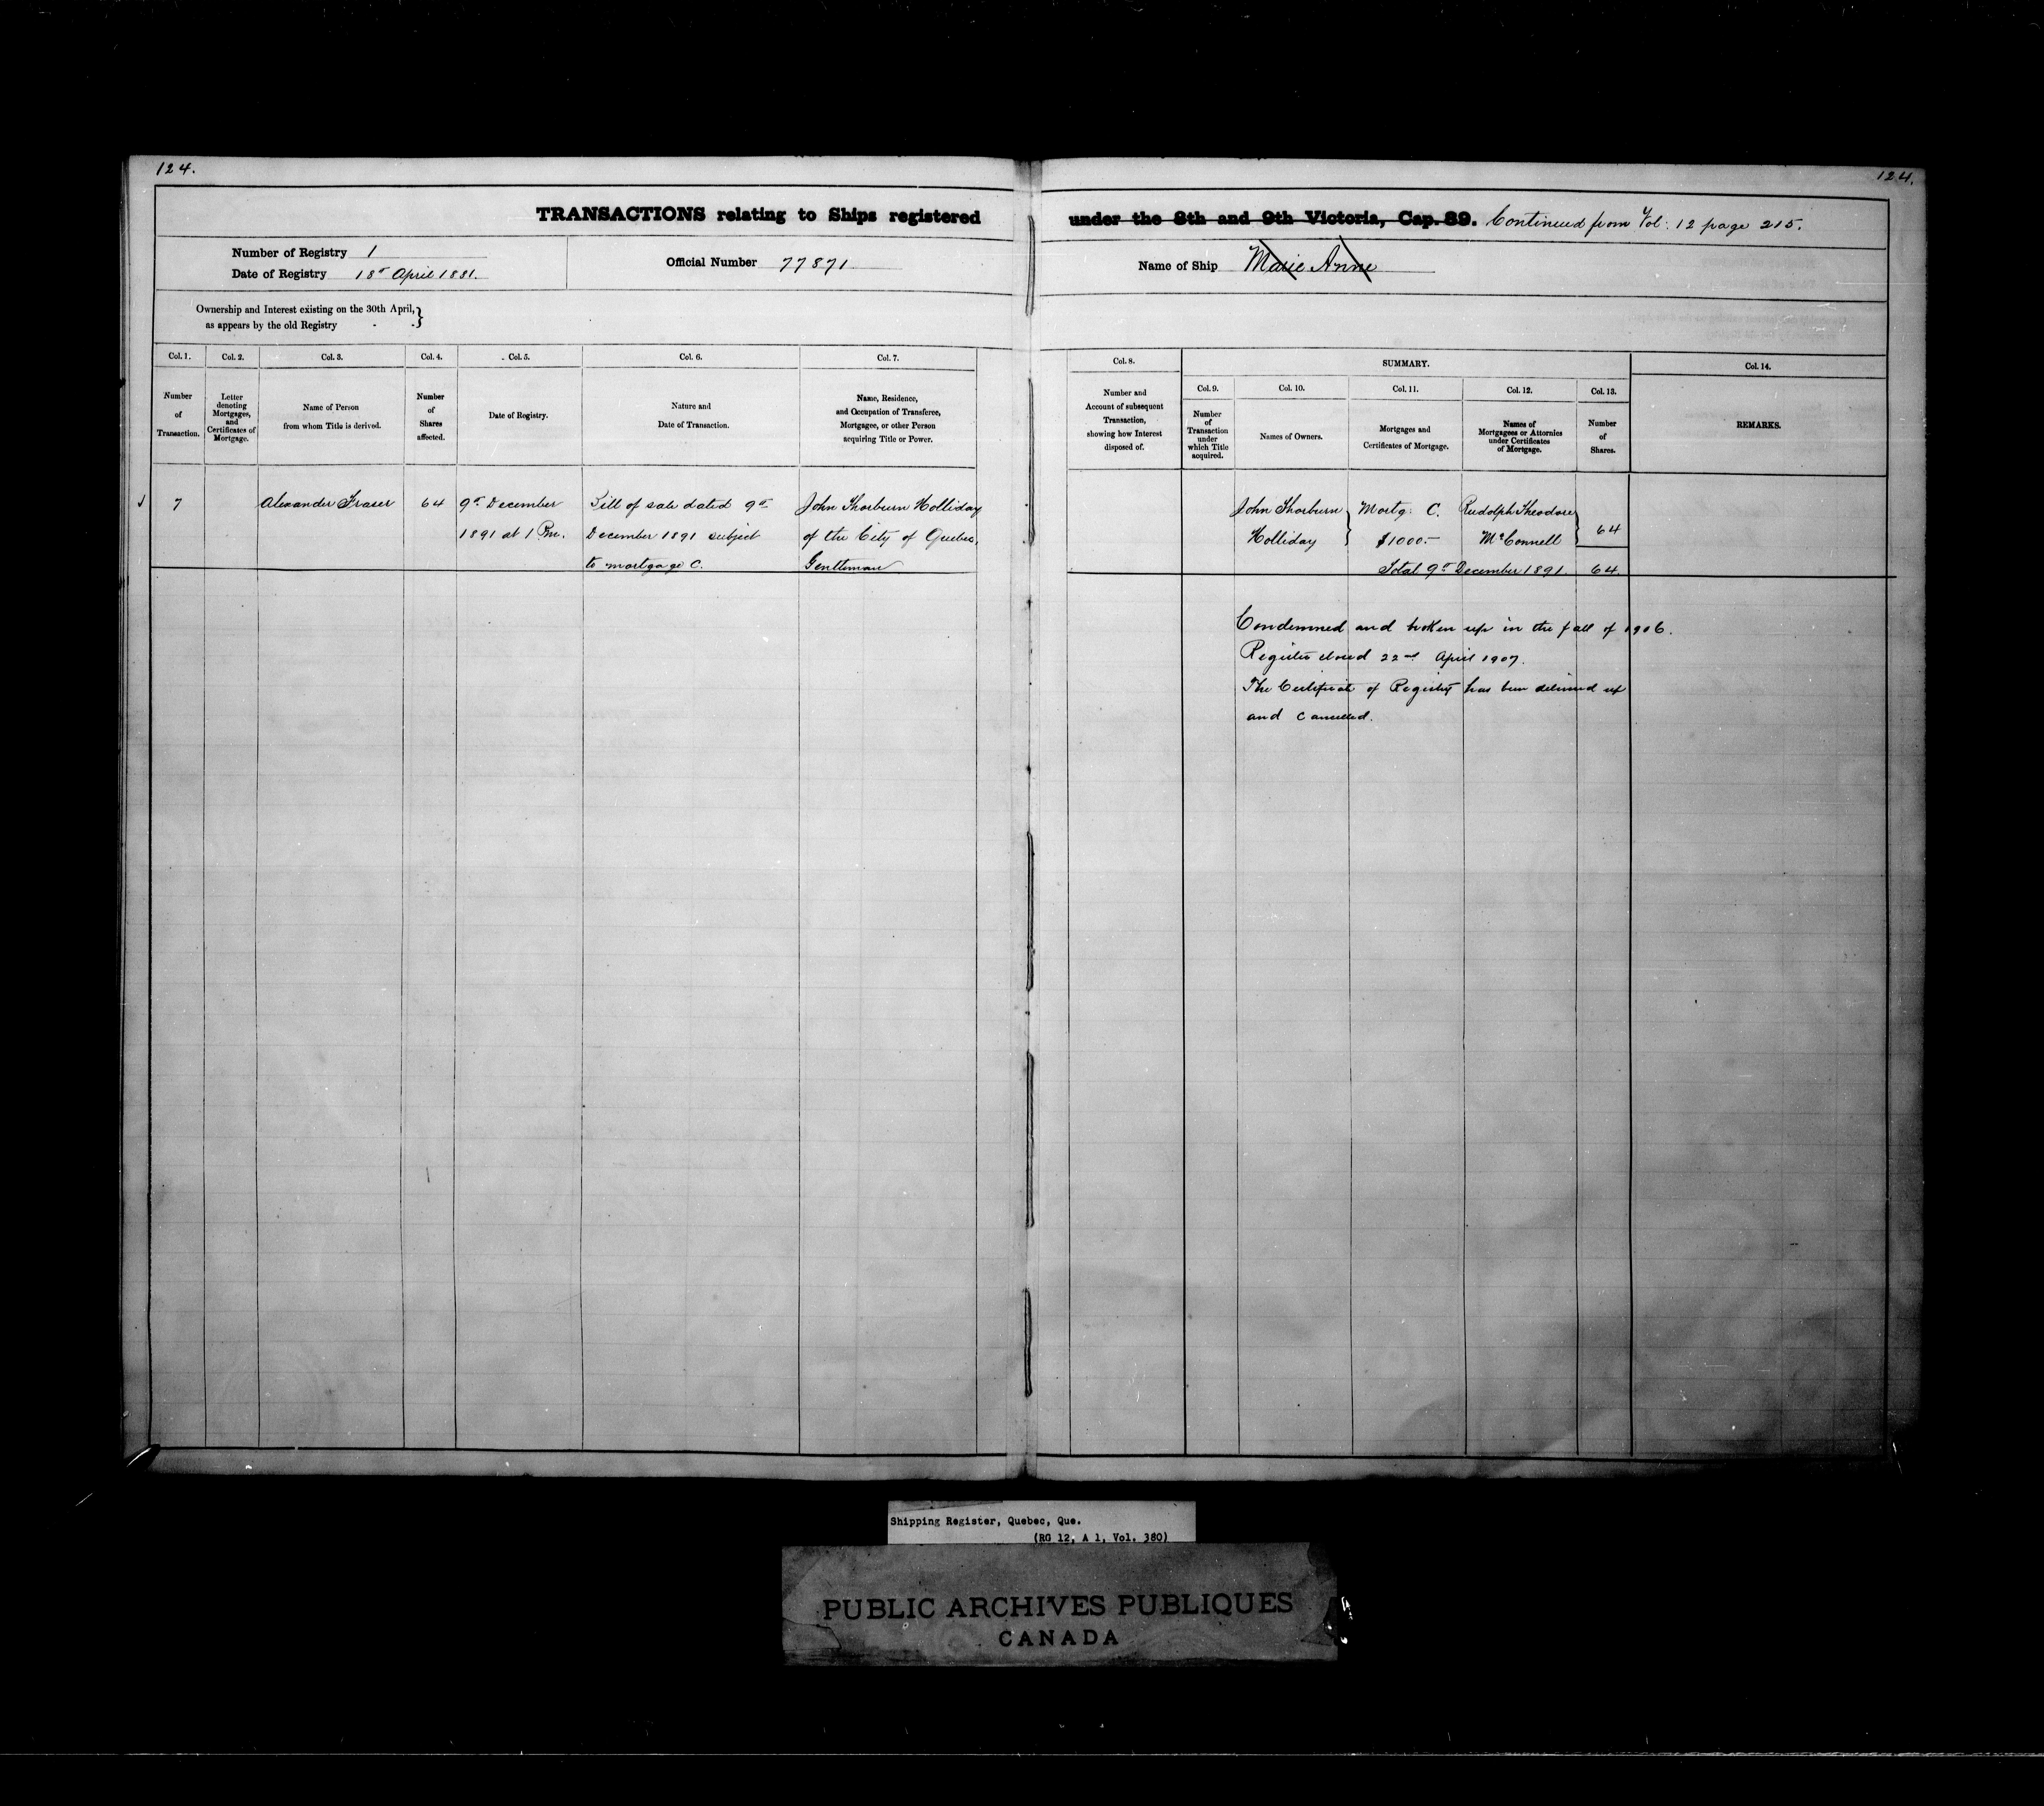 124.
124.
TRANSACTIONS relating to Ships registered under the 8th and 9th Victoria, Cap. 89. Continued from Vol: 12 page 215.
Number of Registry 1
Date of Registry 18th April 1881.
Official Number 77871
Name of Ship Marie Anne
Ownership and Interest existing on the 30th April,
as appears by the old Registry
Col. 1.
Number
of
Transaction.
Col. 2.
Letter
denoting
Mortgages,
and
Certificates of
Mortgage.
Col. 3.
Name of Person
from whom Title is derived.
Col. 4.
Number
of
Shares
affected.
Col. 5.
Date of Registry.
Col. 6.
Nature and
Date of Transaction.
Col. 7.
Name, Residence,
and Occupation of Transferee,
Mortgagee, or other Person
acquiring Title or Power.
Col. 8.
Number and
Account of subsequent
Transaction,
showing how Interest
disposed of.
SUMMARY.
Col. 9.
Number
of
Transaction
under
which Title
acquired.
Col. 10.
Names of Owners.
Col. 11.
Mortgages and
Certificates of Mortgage.
Col. 12.
Names of
Mortgagees or Attornies
under Certificates
of Mortgage.
Col. 13.
Number
of
Shares.
Col. 14.
REMARKS.
7
Alexander Fraser
64
9th December
1891 at 1 Pm.
Bill of sale dated 9th
December 1891 subject
to mortgage C.
John Thorburn Holliday
of the City of Quebec,
Gentleman
John Thorburn
Holliday
Mortg: C.
$1000.-
Rudolph Theodore
McConnell
64
Total 9th December 1891. 64.
Condemned and broken up in the fall of 1906.
Register closed 22nd April 1907.
The Certificate of Registry has been delivered up
and cancelled.
Shipping Register, Quebec, Que.
(RG 12, A 1, Vol. 380)
PUBLIC ARCHIVES PUBLIQUES
CANADA